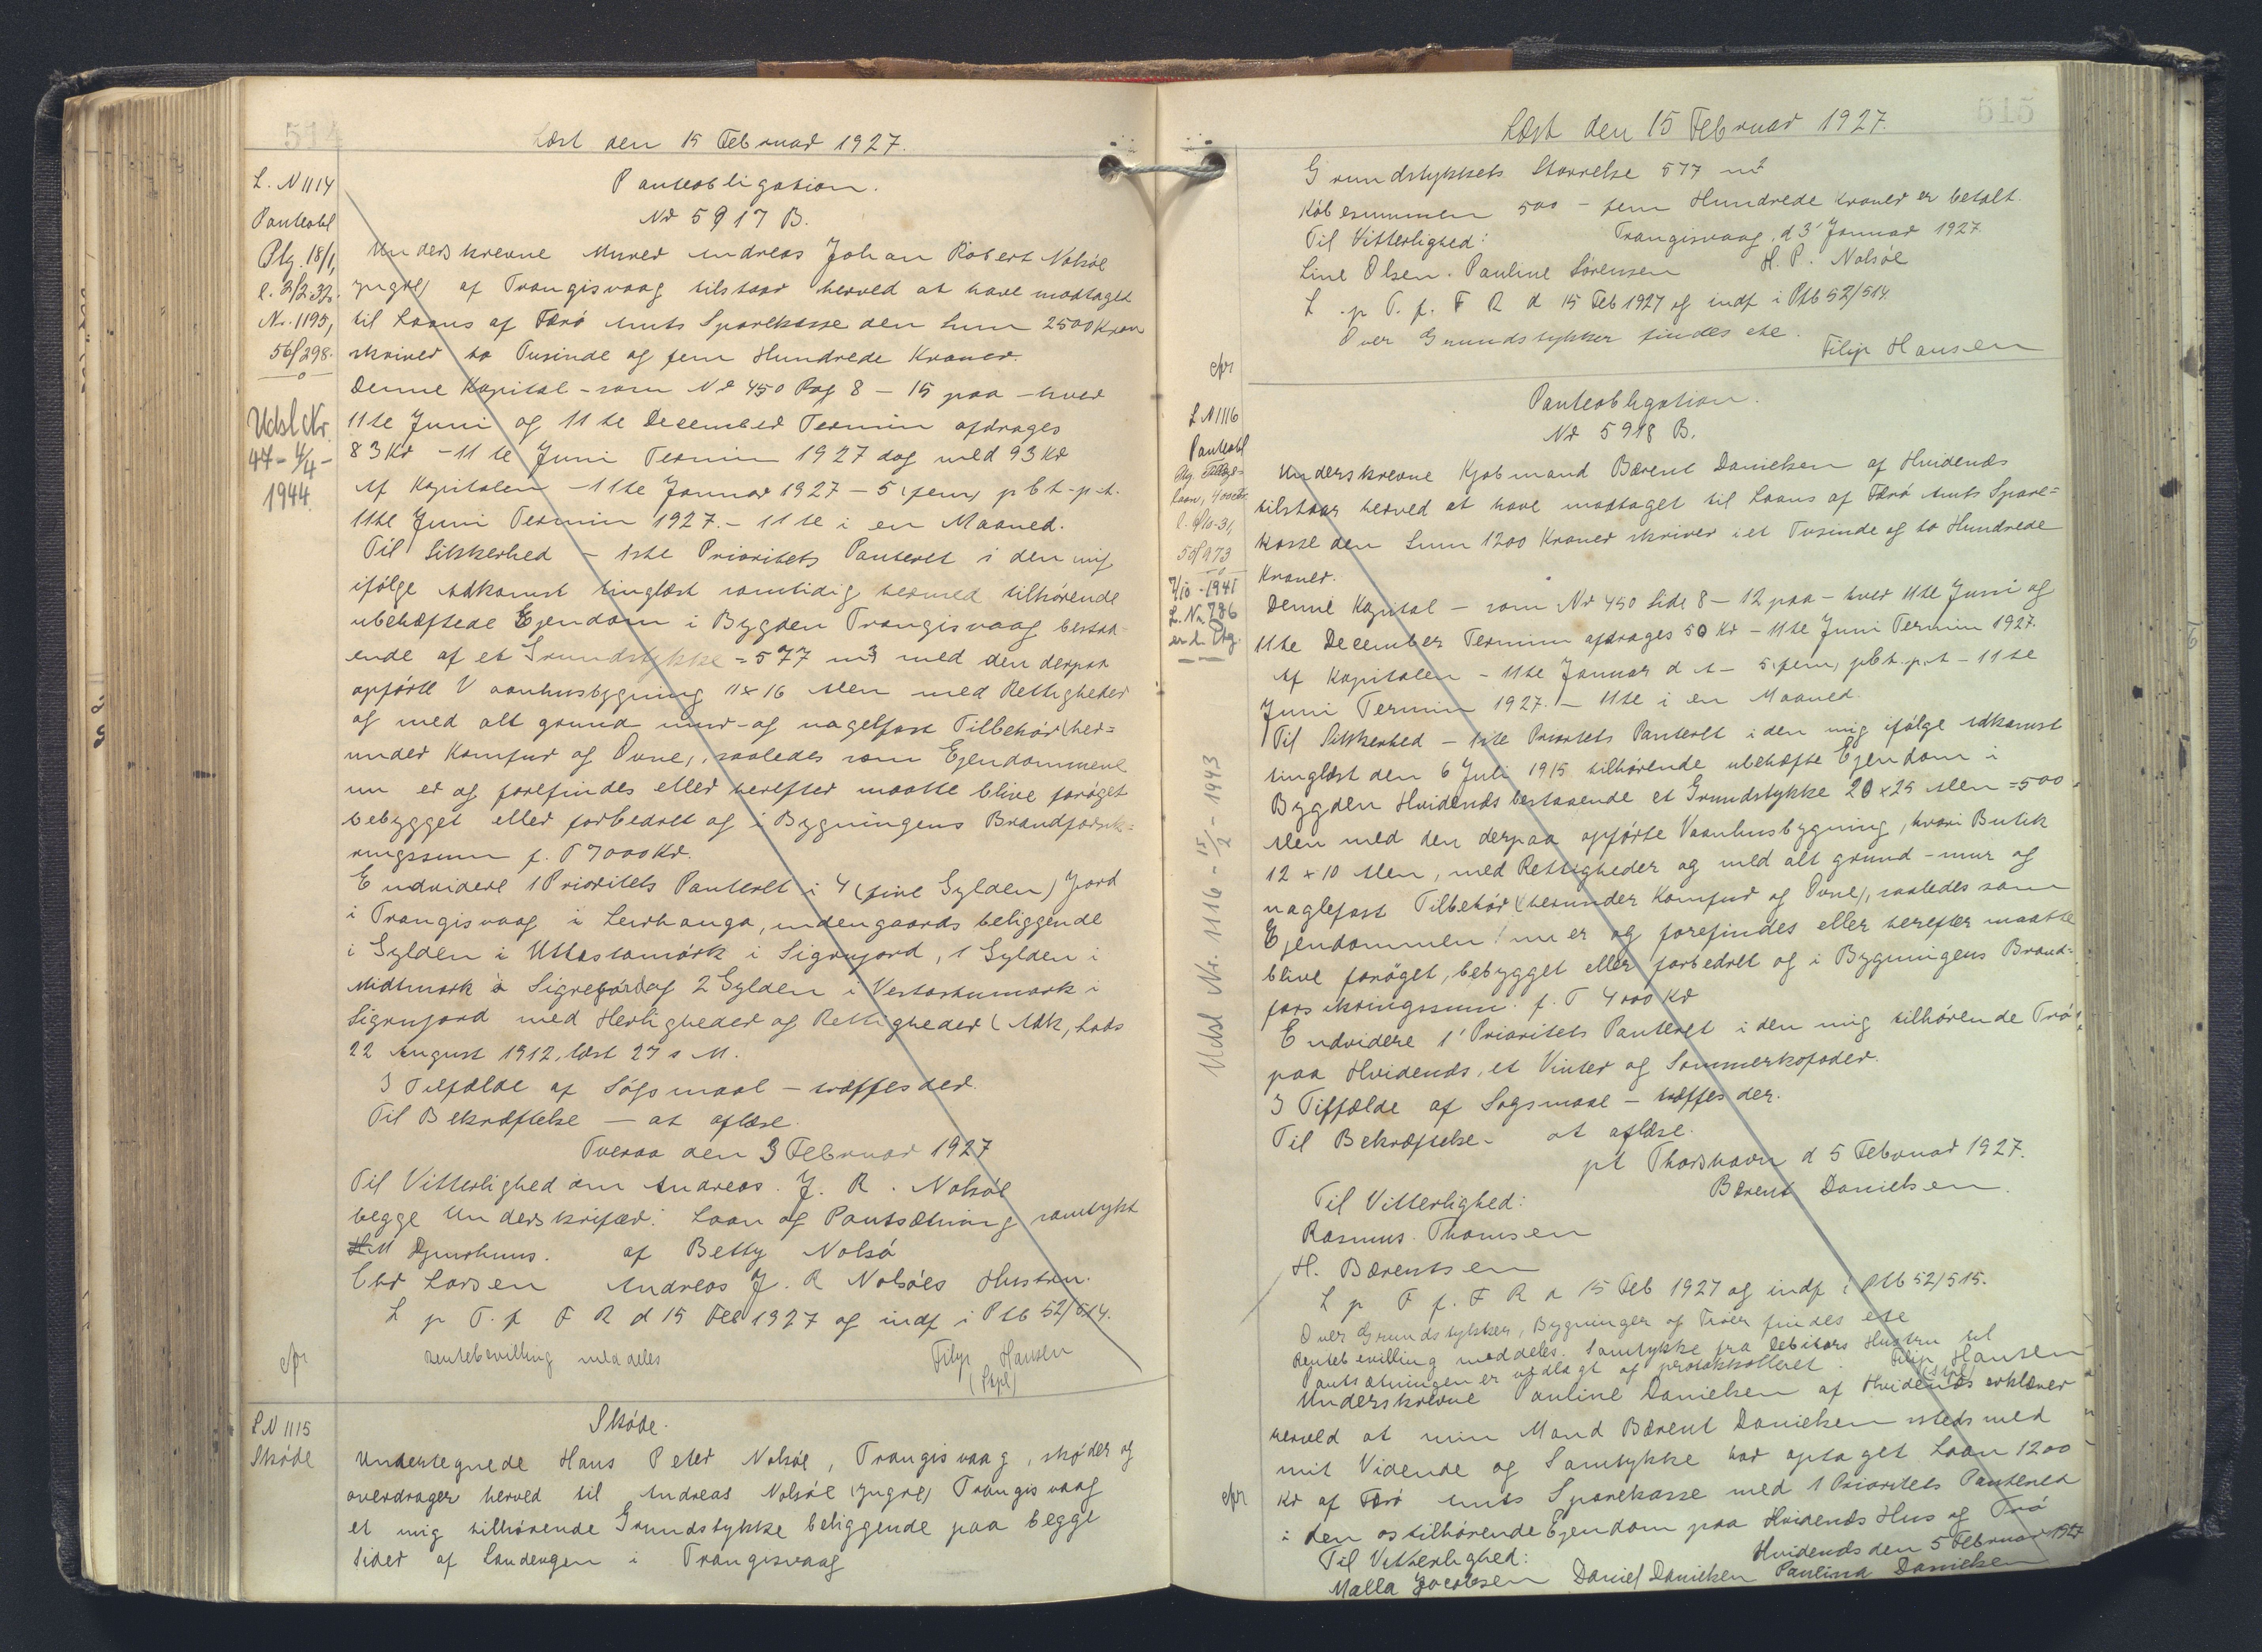 514
Læst den 15 Februar 1927.
L. N 1114
Panteobl
Ptg. 18/1,
l. 2/2-32.
Nr. 1195,
56/298.
Udsl Nr.
47 - 4/4 -
1944.
Panteobligation.
Nr 5917 B.
Underskrevne Murer Andreas Johan Robert Nolsøe
yngre, af Trangisvaag tilstaar herved at have modtaget
til Laans af Færø Amts Sparekasse den Sum 2500 Kroner
skriver to Tusinde og fem Hundrede Kroner.
Denne Kapital - som Nr 450 Pag 8 - 15 paa - hver
11te Juni og 11te December Termin afdrages
83 Kr - 11te Juni Termin 1927 dog med 93 Kr
Af Kapitalen - 11te Januar 1927 - 5 (fem) p b t. p. t.
11te Juni Termin 1927. - 11te i en Maaned.
Til Sikkerhed - 1ste Prioritets Panteret i den mig
ifølge Adkomst tinglæst samtidig hermed tilhørende
ubehæftede Ejendom i Bygden Trangisvaag bestaa-
ende af et Grundstykke = 577 m² med den derpaa
opførte Vaanhusbygning 11 x 16 Alen med Rettigheder
og med alt grund mur- og nagelfast Tilbehør (her=
under Komfur og Ovne), saaledes som Ejendommene
nu er og forefindes eller herefter maatte blive forøget
bebygget eller forbedret og i Bygningens Brandforsik=
ringssum f. T 7000 Kr.
Endvidere 1 Prioritets Panteret i 4 (fire Gylden) Jord
i Trangisvaag i Leirhanga, indengaards beliggende
i Gylden i Uttastamörk i Signujord, 1 Gylden i
Midtmörk i Signujord og 2 Gylden i Vestastumörk i
Signujord med Herligheder og Rettigheder (Adk,
22 August 1912, læst 27 s M.
I Tilfælde af Søgsmaal - træffes der.
Til Bekræftelse - at aflæse.
Tveraa den 3 Februar 1927
Til Vitterlighed om Andreas. J. R. Nolsøe
begge Underskrifter: Laan og Pantsætning samtykt
H M Djurhuus. af Betty Nolsø
Chr Larsen Andreas J. R Nolsøes Hustru.
L p T. f F R d 15 Feb 1927 og indf i Ptb 52/514.
Rentebevilling meddeles Filip Hansen
cfr
L N 1115
Skøde
Skøde.
Undertegnede Hans Peter Nolsøe, Trangisvaag, skøder og
overdrager herved til Andreas Nolsøe (yngre) Trangisvaag
et mig tilhørende Grundstykke beliggende paa begge
Sider af Landevegen i Trangisvaag
515
Læst den 15 Februar 1927.
Grundstykkets Størrelse 577 m²
Købesummen 500 - fem Hundrede Kroner er betalt.
Til Vitterlighed: Trangisvaag, d 3' Januar 1927
Line Olsen. Pauline Sørensen H. P. Nolsøe
L. p T. f. F R d 15 Feb 1927 og indf i Ptb 52/514
Over Grundstykker findes ete. Filip Hansen
cfr
L N 1116
Panteobl
Laan, 4000
50/973
7/10 - 1941
L. Nr. 786
Udsl Nr. 1116 - 15/2 - 1943
Panteobligation.
Nr 5918 B.
Underskrevne Kjøbmand Bærent Danielsen af Hvidenæs
tilstaar herved at have modtaget til Laans af Færø Amts Spare=
kasse den Sum 1200 Kroner skriver i et Tusinde og to Hundrede
Kroner.
Denne Kapital - som Nr 450 Side 8 - 12 paa - hver 11te Juni og
11te December Termin afdrages 50 Kr - 11te Juni Termin 1927.
Af Kapitalen - 11te Januar d A - 5 (fem) pbt. p. t - 11te
Juni Termin 1927. - 11te i en Maaned.
Til Sikkerhed - 1ste Prioritets Panteret i den mig ifølge Adkomst
tinglæst den 6 Juli 1915 tilhørende ubehæfte Ejendom i
Bygden Hvidenæs bestaaende et Grundstykke 20 x 25 Alen = 500
Alen med den derpaa opførte Vaanhusbygning, hvori Butik
12 x 10 Alen, med Rettigheder og med alt grund - mur og
naglefast Tilbehør (herunder Komfur og Ovne), saaledes som
Ejendommen nu er og forefindes eller herefter maatte
blive forøget, bebygget eller forbedret og i Bygningens Brand-
forsikringssum: f. T 4000 Kr
Endvidere 1' Prioritets Panteret i den mig tilhørende Trø
paa Hvidenæs, et Vinter og Sommerkofoder.
I Tilfælde af Søgsmaal - træffes der.
Til Bekræftelse - at aflæse.
pt Thorshavn d 5 Februar 1927.
Til Vitterlighed: Bærent Danielsen.
Rasmus Thomsen
H. Bærentsen
L p T f. F R d 15 Feb 1927 og indf i Ptb 52/515.
Over Grundstykker, Bygninger og Trøer findes ete
Rentebevilling meddeles. Samtykke fra Debitors Hustru til
Pantsætningen er vedlagt og protokolleret. Filip Hansen
Underskrevne Pauline Danielsen af Hvidenæs erklærer
herved at min Mand Bærent Danielsen med
mit Vidende og Samtykke har optaget Laan 1200
Kr af Færø Amts Sparekasse med 1 Prioritets Panteret
i den os tilhørende Ejendom paa Hvidenæs Hus og Trø
cfr
Til Vitterlighed: Hvidenæs den 5 Februar 1927
Malla Jacobsen Daniel Danielsen Paulina Danielsen